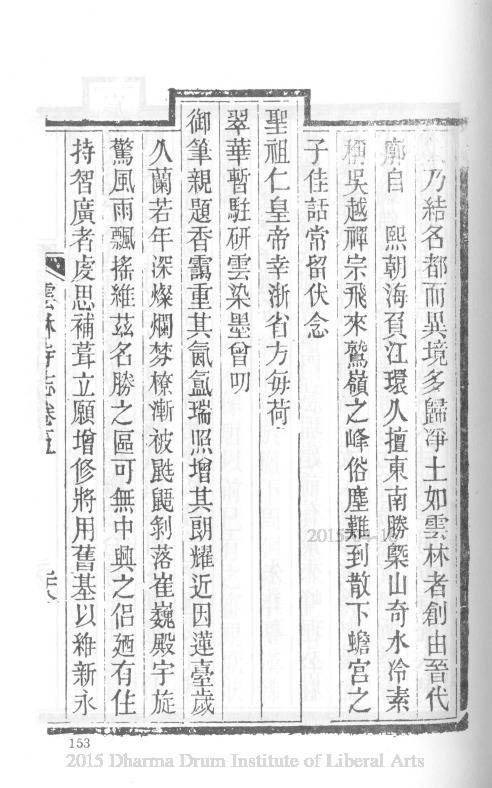 乃結名都而異境多歸淨土如雲林者創由晉代
廓自 熙朝海負江環久擅東南勝槩山奇水冷素
稱吳越禪宗飛來鷲嶺之峰俗塵難到散下蟾宮之
子佳話常留伏念
聖祖仁皇帝幸浙省方每荷
翠華暫駐研雲染墨曾叨
御筆親題香靄重其氤氳瑞照增其朗耀近因蓮臺歲
久蘭若年深燦爛棼橑漸被鼪鼯剝落崔巍殿宇旋
驚風雨飄搖維茲名勝之區可無中興之侶廼有住
持智廣者虔思補葺立願增修將用舊基以維新永
雲林寺志卷五
153
2015 Dharma Drum Institute of Liberal Arts